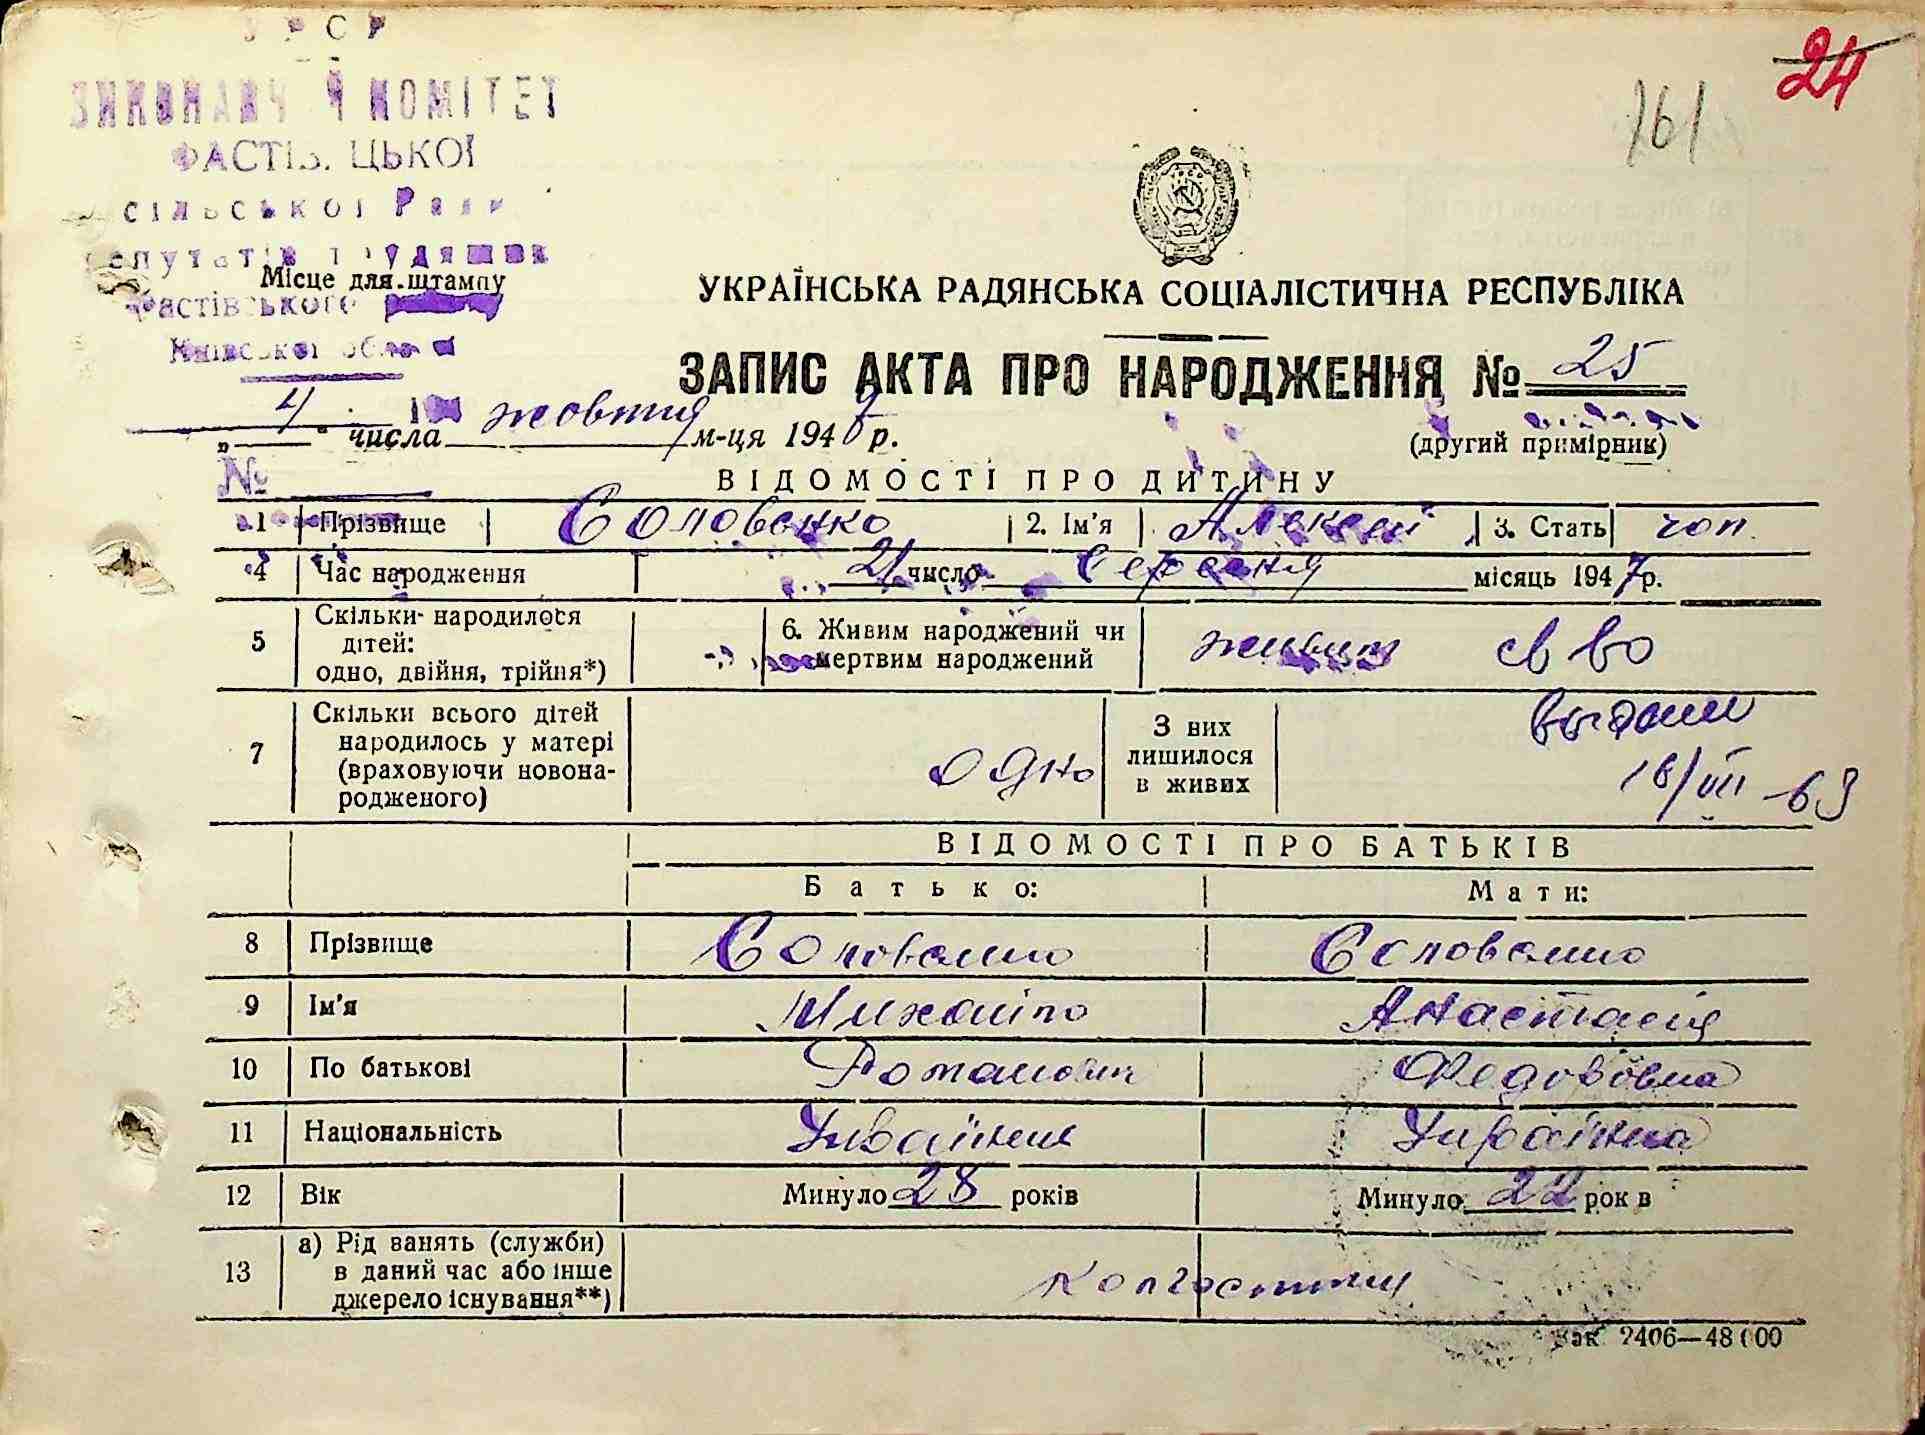 УРСР
ВИКОНАВЧИЙ КОМІТЕТ
ФАСТІВЕЦЬКОЇ
сільської Ради
депутатів трудящих
Місце для штампу
Фастівського
Київської обл
24
161
УКРАЇНСЬКА РАДЯНСЬКА СОЦІАЛІСТИЧНА РЕСПУБЛІКА
ЗАПИС АКТА ПРО НАРОДЖЕННЯ № 25
4 числа жовтня м-ця 1947 р.
(другий примірник)
№
ВІДОМОСТІ ПРО ДИТИНУ
1 Прізвище Соловенко 2. Ім'я Алексей 3. Стать чол.
4 Час народження 21 число Серпня місяць 1947 р.
5 Скільки народилося дітей: одно, двійня, трійня*) 6. Живим народжений чи мертвим народжений живим св во
7 Скільки всього дітей народилось у матері (враховуючи новонародженого) одно З них лишилося в живих
выдали
18/VII -69
ВІДОМОСТІ ПРО БАТЬКІВ
Батько: Мати:
8 Прізвище Соловенко Соловенко
9 Ім'я Михайло Анастасія
10 По батькові Романович Федорівна
11 Національність Українець Українка
12 Вік Минуло 28 років Минуло 22 років
13 а) Рід занять (служби) в даний час або інше джерело існування**) Колгоспники
Зак 2406—48000